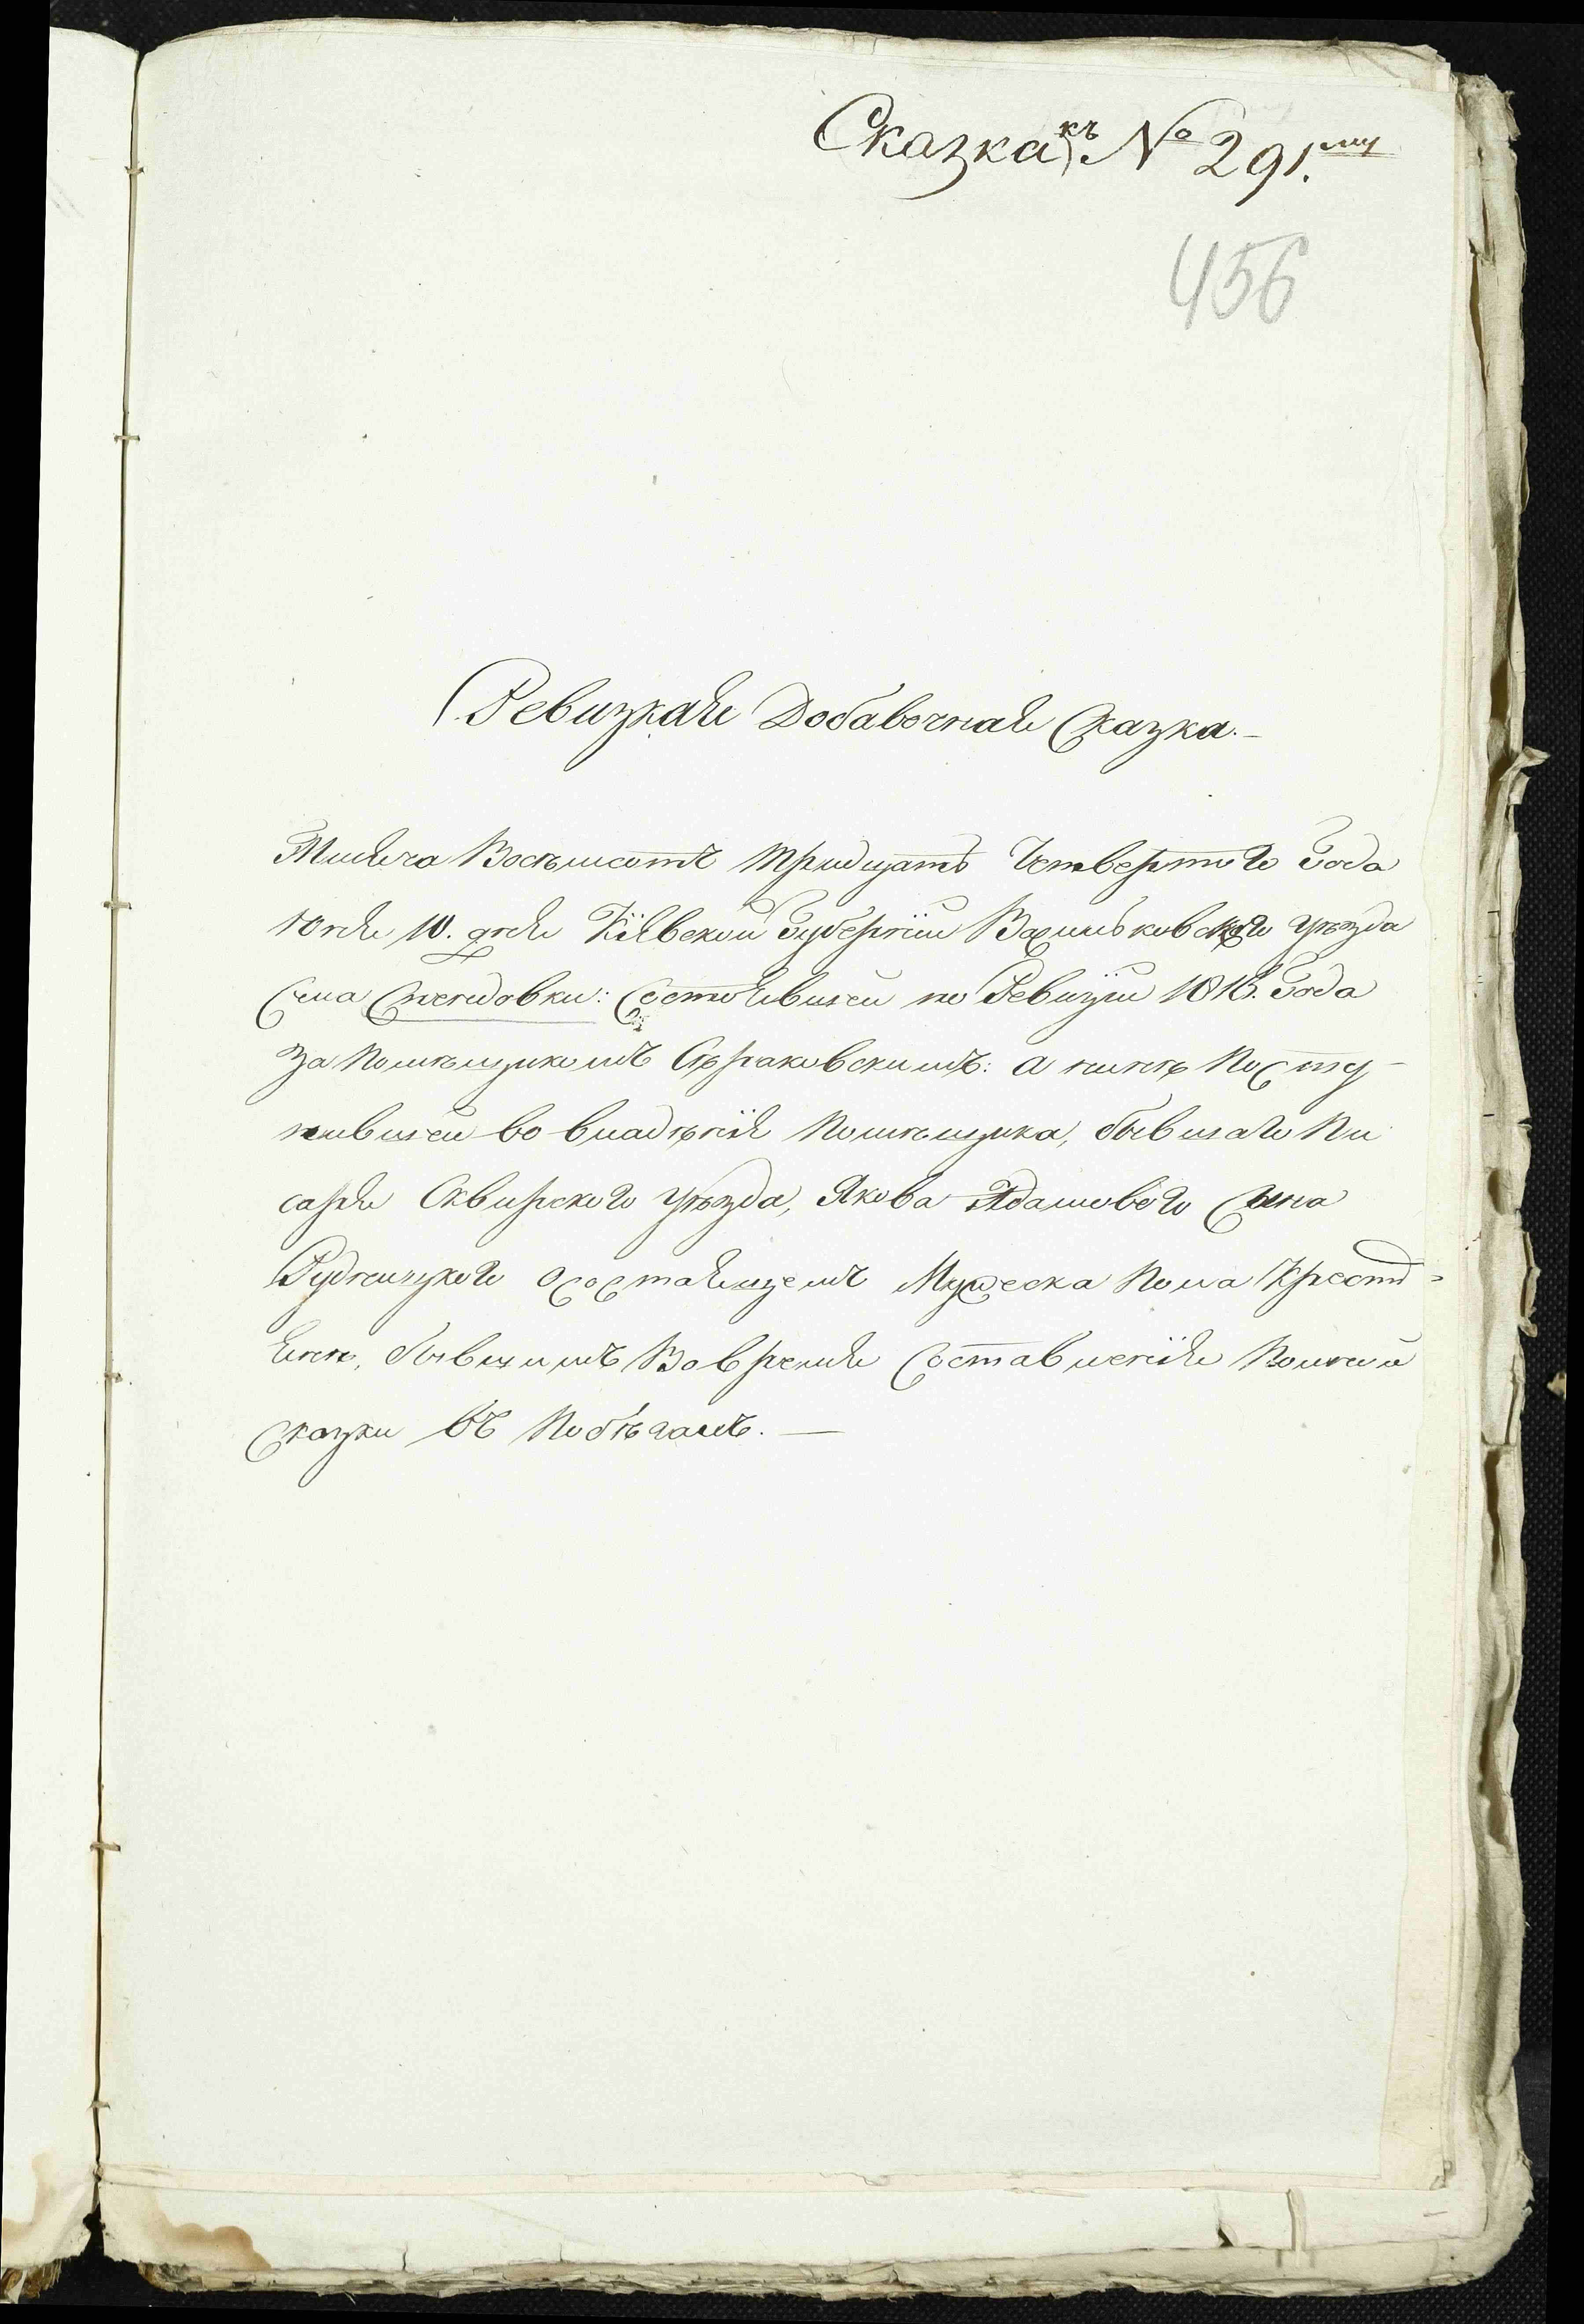 Сказка къ № 291.му
456
Ревизкая Добавочная Сказка.—
Тысяча Восѣмсотъ тридцать Четвертого Года
Юня 10. дня Кіевской Губерніи Васильковского уѣзда
Села Снегидовки: Состоявшей по Ревизіи 1816. Года
за помѣщикомъ Сѣраковскимъ: а нынѣ Посту-
пившей во владѣнія помѣщика, бывшаго Пи
саря Сквирского уѣзда, Якова Адамового Сына
Рудницкого о состаящемъ Мужеска Пола Крестя=
янѣ, бывшимъ Вовремя Составленія Полной
Сказки въ Побѣгахъ.—